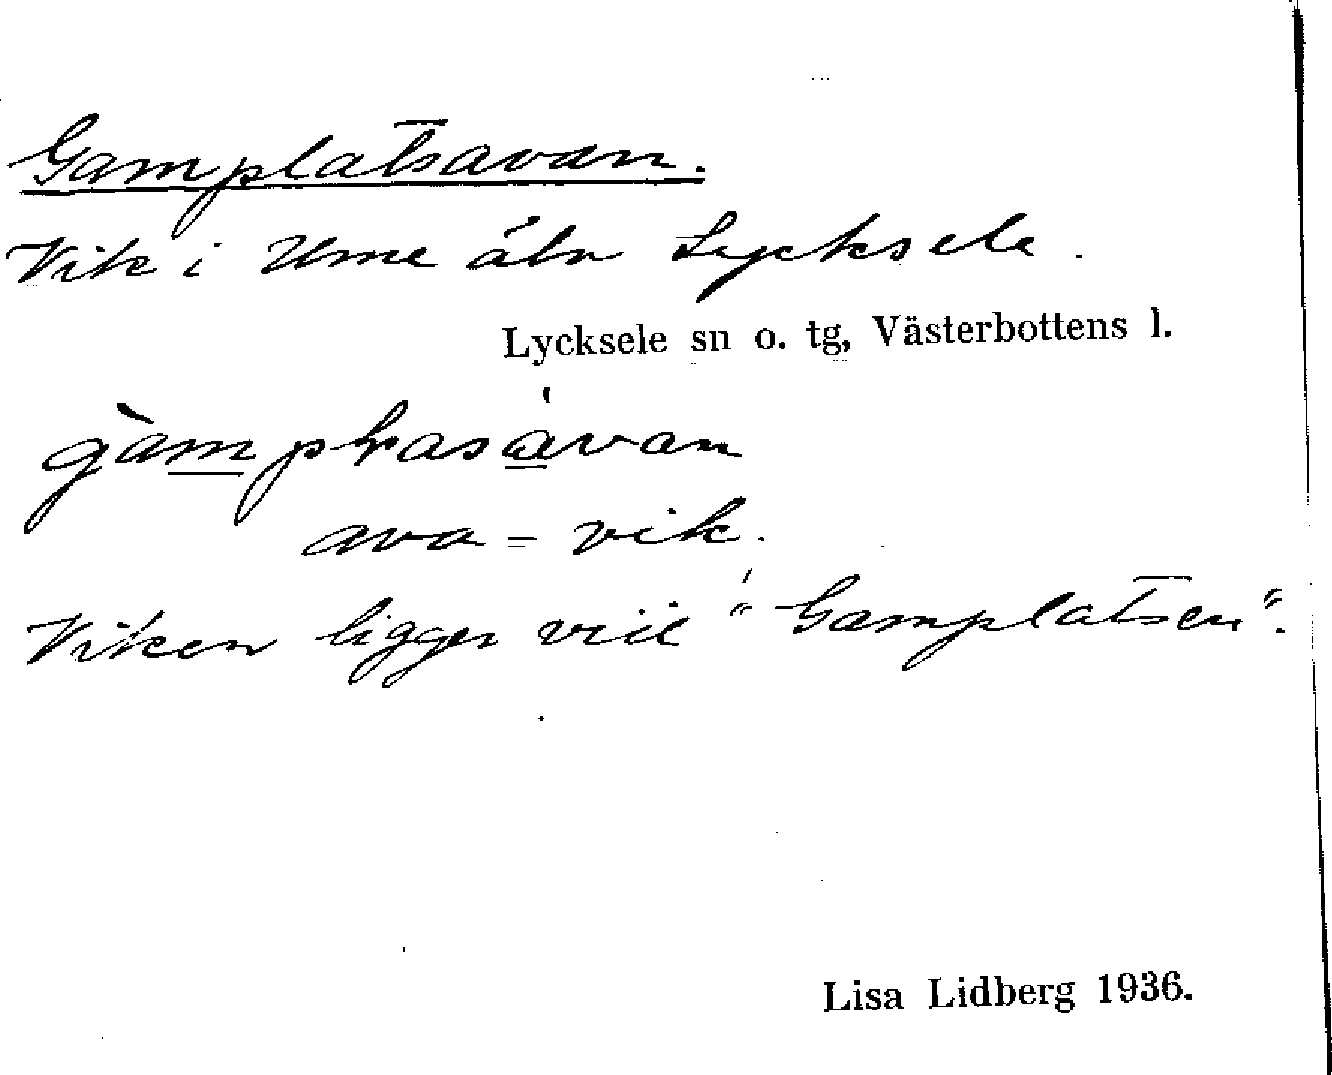 Gamplatsavan.
Vik i Ume älv Lycksele.
Lycksele sn o. tg, Västerbottens l.
ava = vik.
Viken ligger vid "Gamplatsen".
Lisa Lidberg 1936.